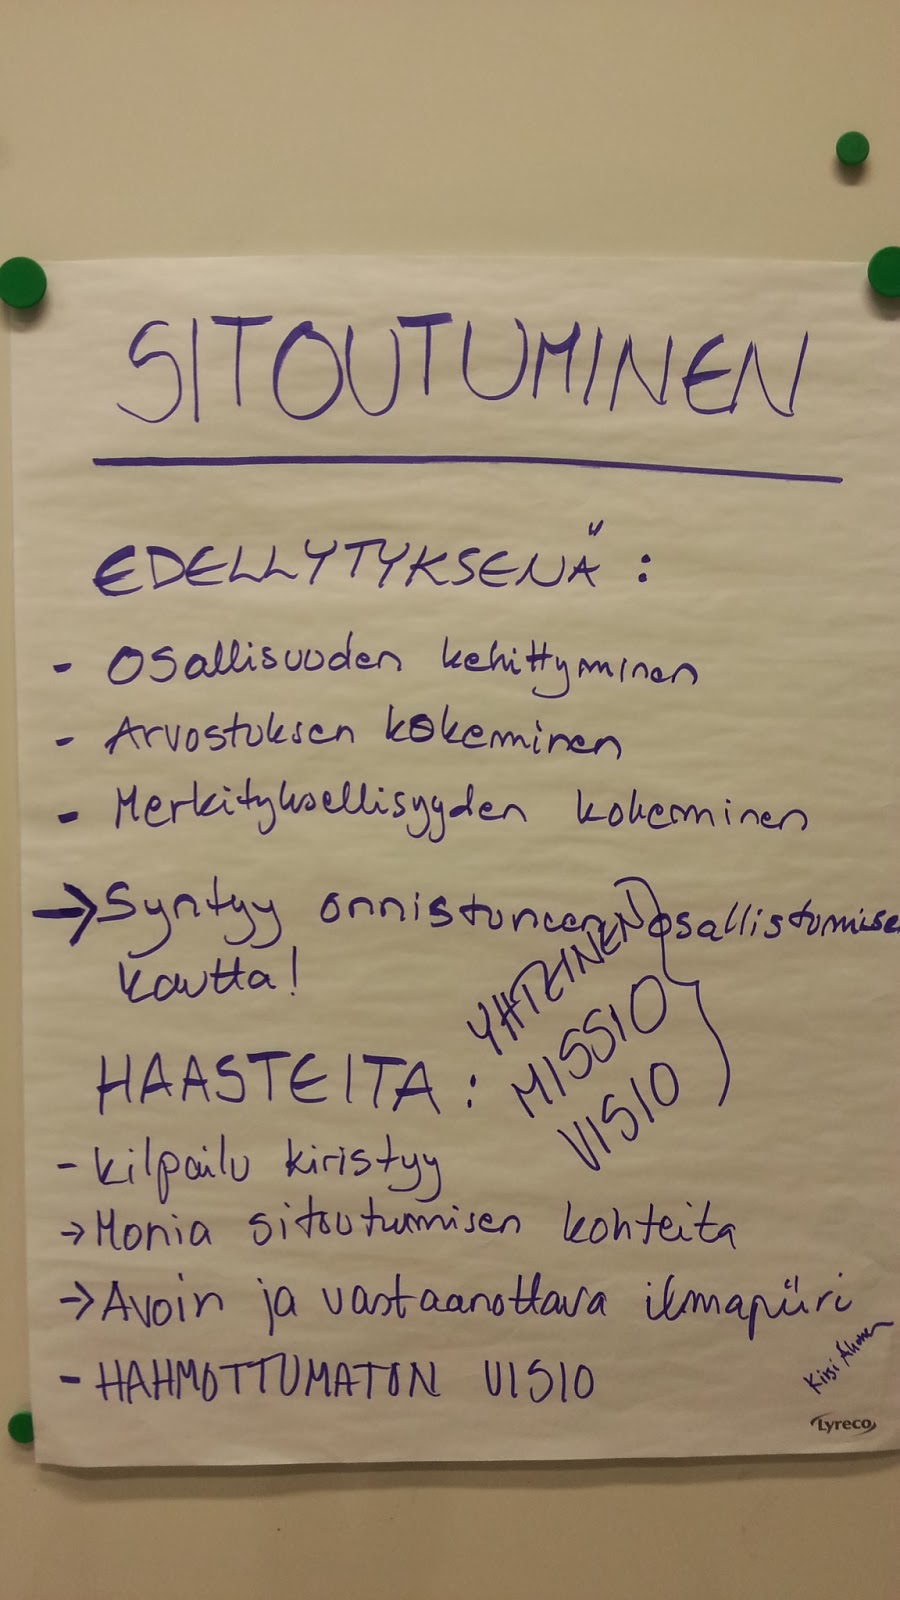 SITOUTUMINEN
EDELLYTYKSENÄ :
- Osallisuuden kehittyminen
- Arvostuksen kokeminen
- Merkityksellisyyden kokeminen
→ Syntyy onnistuneen osallistumise
kautta!
YHTEINEN
MISSIO
VISIO
HAASTEITA :
- Kilpailu kiristyy
→ Monia sitoutumisen kohteita
→ Avoin ja vastaanottava ilmapiiri
- HAHMOTTUMATON VISIO
Kirsi Ahonen
Lyreco